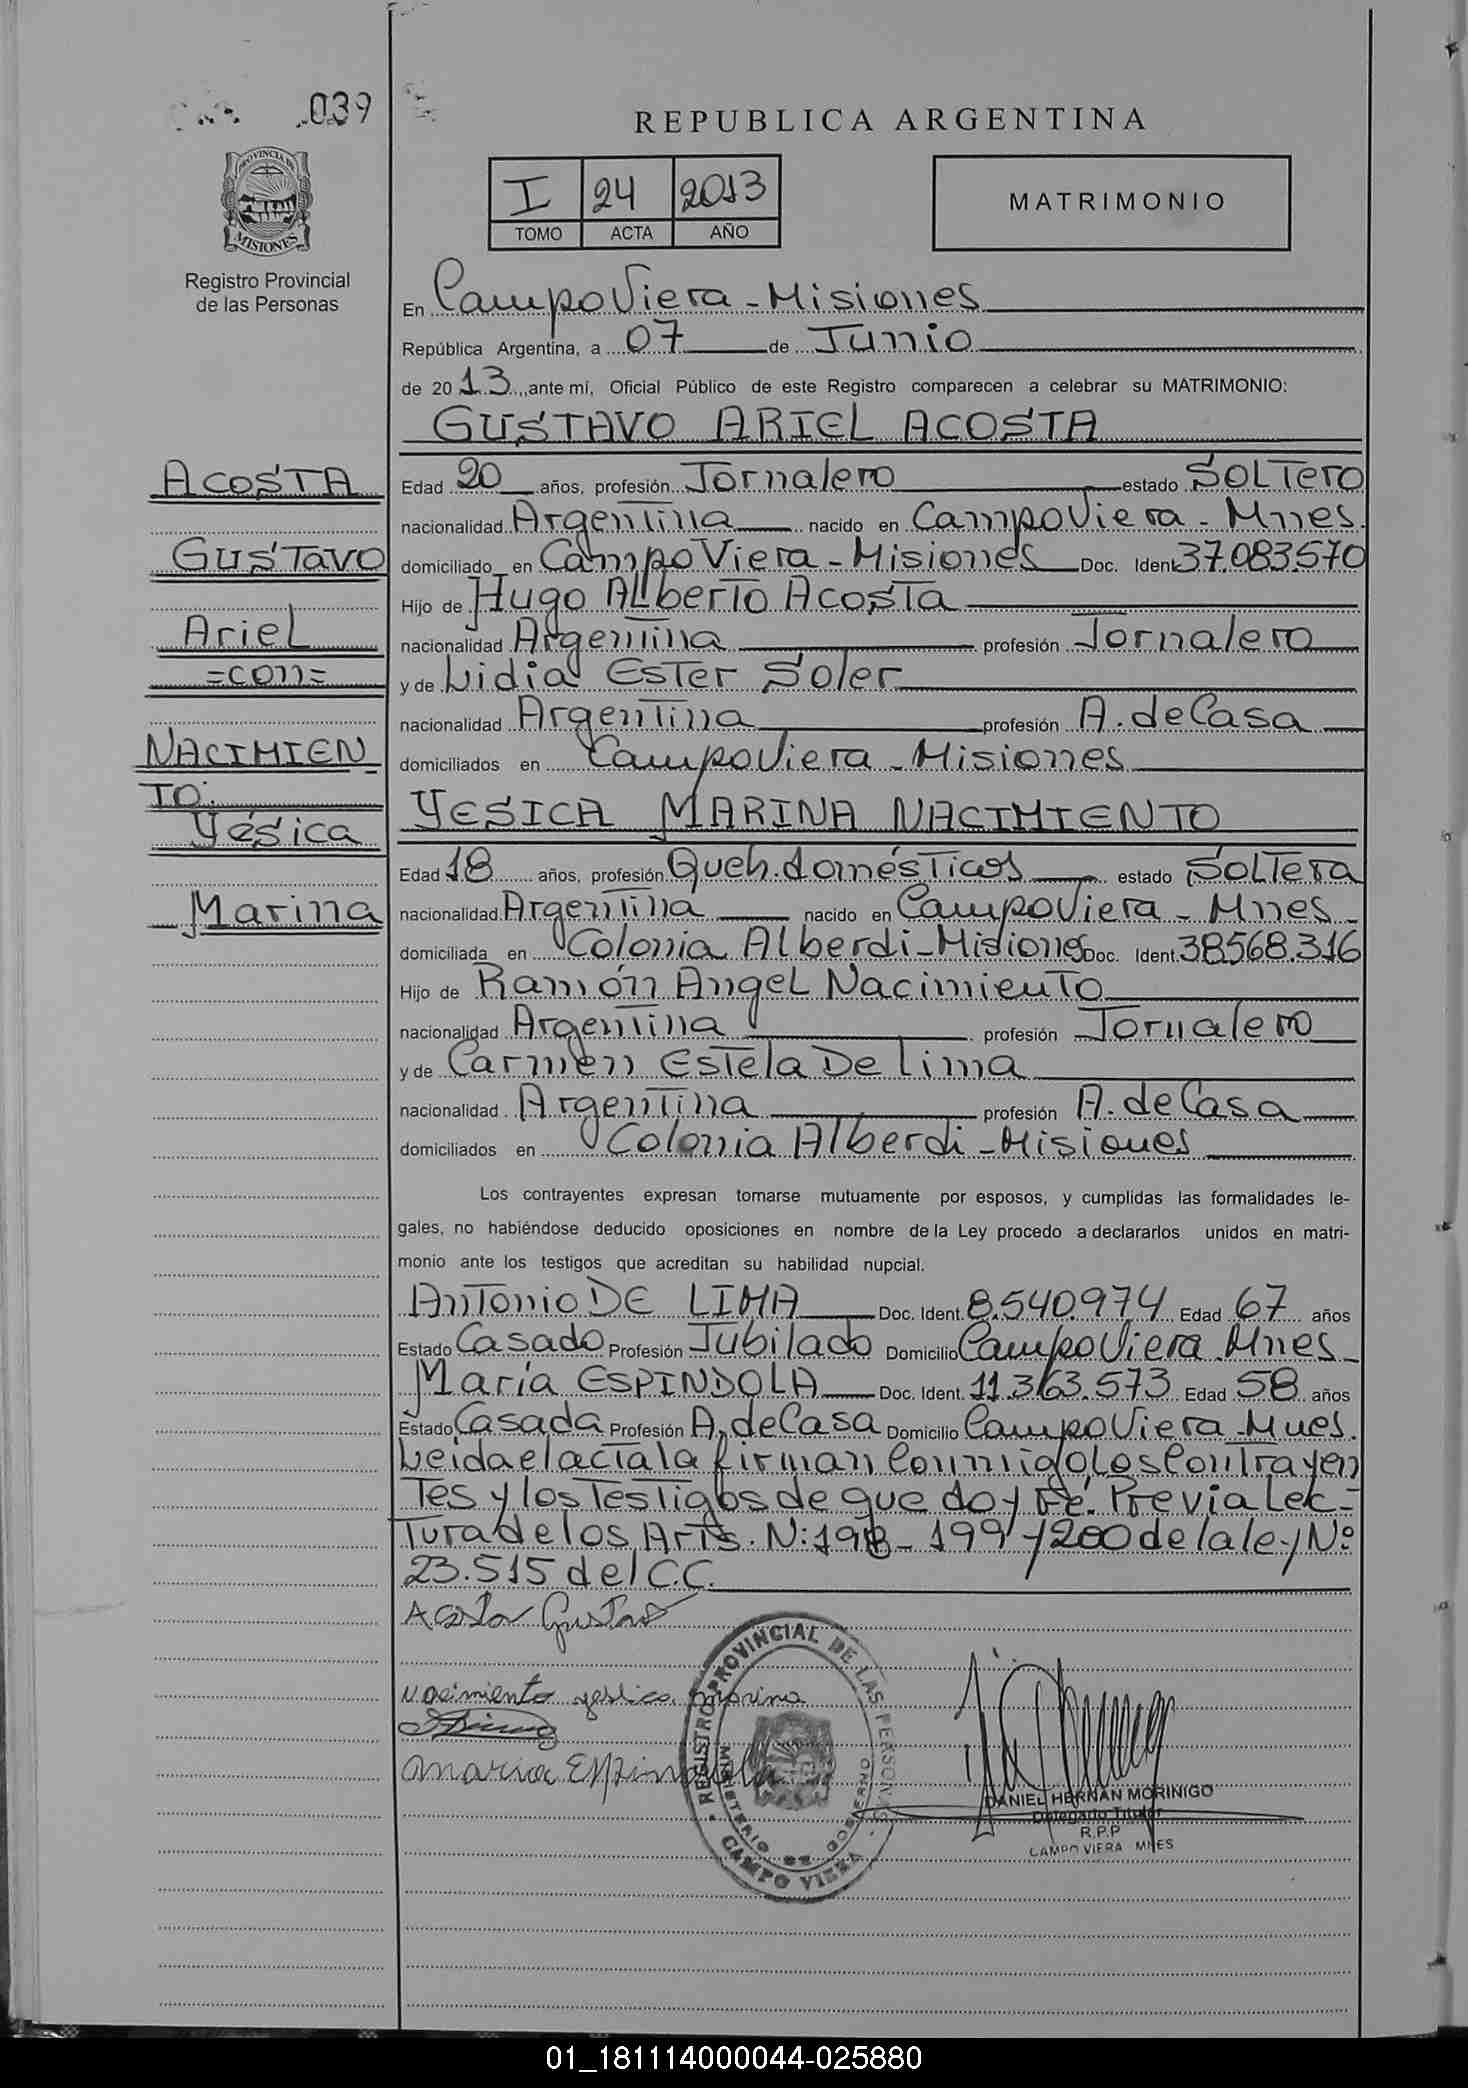 039
REPUBLICA ARGENTINA
PROVINCIA DE
MISIONES
I 24 2013
TOMO ACTA AÑO
MATRIMONIO
Registro Provincial
de las Personas
En Campo Viera - Misiones
República Argentina, a 07 de Junio
de 2013, ante mí, Oficial Público de este Registro comparecen a celebrar su MATRIMONIO:
GUSTAVO ARIEL ACOSTA
ACOSTA
Edad 20 años, profesión Jornalero estado SOLTero
nacionalidad Argentina nacido en Campo Viera - Mnes.
GUSTavo
domiciliado en Campo Viera - Misiones Doc. Ident 37.083.570
Hijo de Hugo ALberto Acosta
Ariel
nacionalidad Argentina profesión Jornalero
=con=
y de Lidia Ester Soler
nacionalidad Argentina profesión A. de Casa
NACIMIEN
domiciliados en Campo Viera - Misiones
TO.
YESICA MARINA NACIMIENTO
Yésica
Edad 18 años, profesión Queh. domésticos estado SolTera
Marina
nacionalidad Argentina nacido en Campo Viera - Mnes -
domiciliada en Colonia Alberdi - Misiones Doc. Ident. 38.568.316
Hijo de Ramón Angel Nacimiento
nacionalidad Argentina profesión Jornalero
y de Carmen Estela De Lima
nacionalidad Argentina profesión A. de Casa
domiciliados en Colonia Alberdi - Misiones
Los contrayentes expresan tomarse mutuamente por esposos, y cumplidas las formalidades le-
gales, no habiéndose deducido oposiciones en nombre de la Ley procedo a declararlos unidos en matri-
monio ante los testigos que acreditan su habilidad nupcial.
Antonio DE LIMA Doc. Ident. 8.540.974 Edad 67 años
Estado Casado Profesión Jubilado Domicilio Campo Viera Mnes -
María ESPINDOLA Doc. Ident. 11.363.573 Edad 58 años
Estado Casada Profesión A. de Casa Domicilio Campo Viera - Mnes.
Leida el acta la firman conmigo Los Contrayen
tes y los testigos de que doy Fé. Previa Lec-
tura de los Arts. N: 198 - 199 y 200 de la ley Nº
23.515 del C.C.
Acosta Gustavo
Nacimiento yessica marina
maria Espindola
REGISTRO PROVINCIAL DE LAS PERSONAS
MINISTERIO DE GOBIERNO
CAMPO VIERA
DANIEL HERNAN MORINIGO
Delegado Titular
R.P.P
CAMPO VIERA MNES
01_181114000044-025880